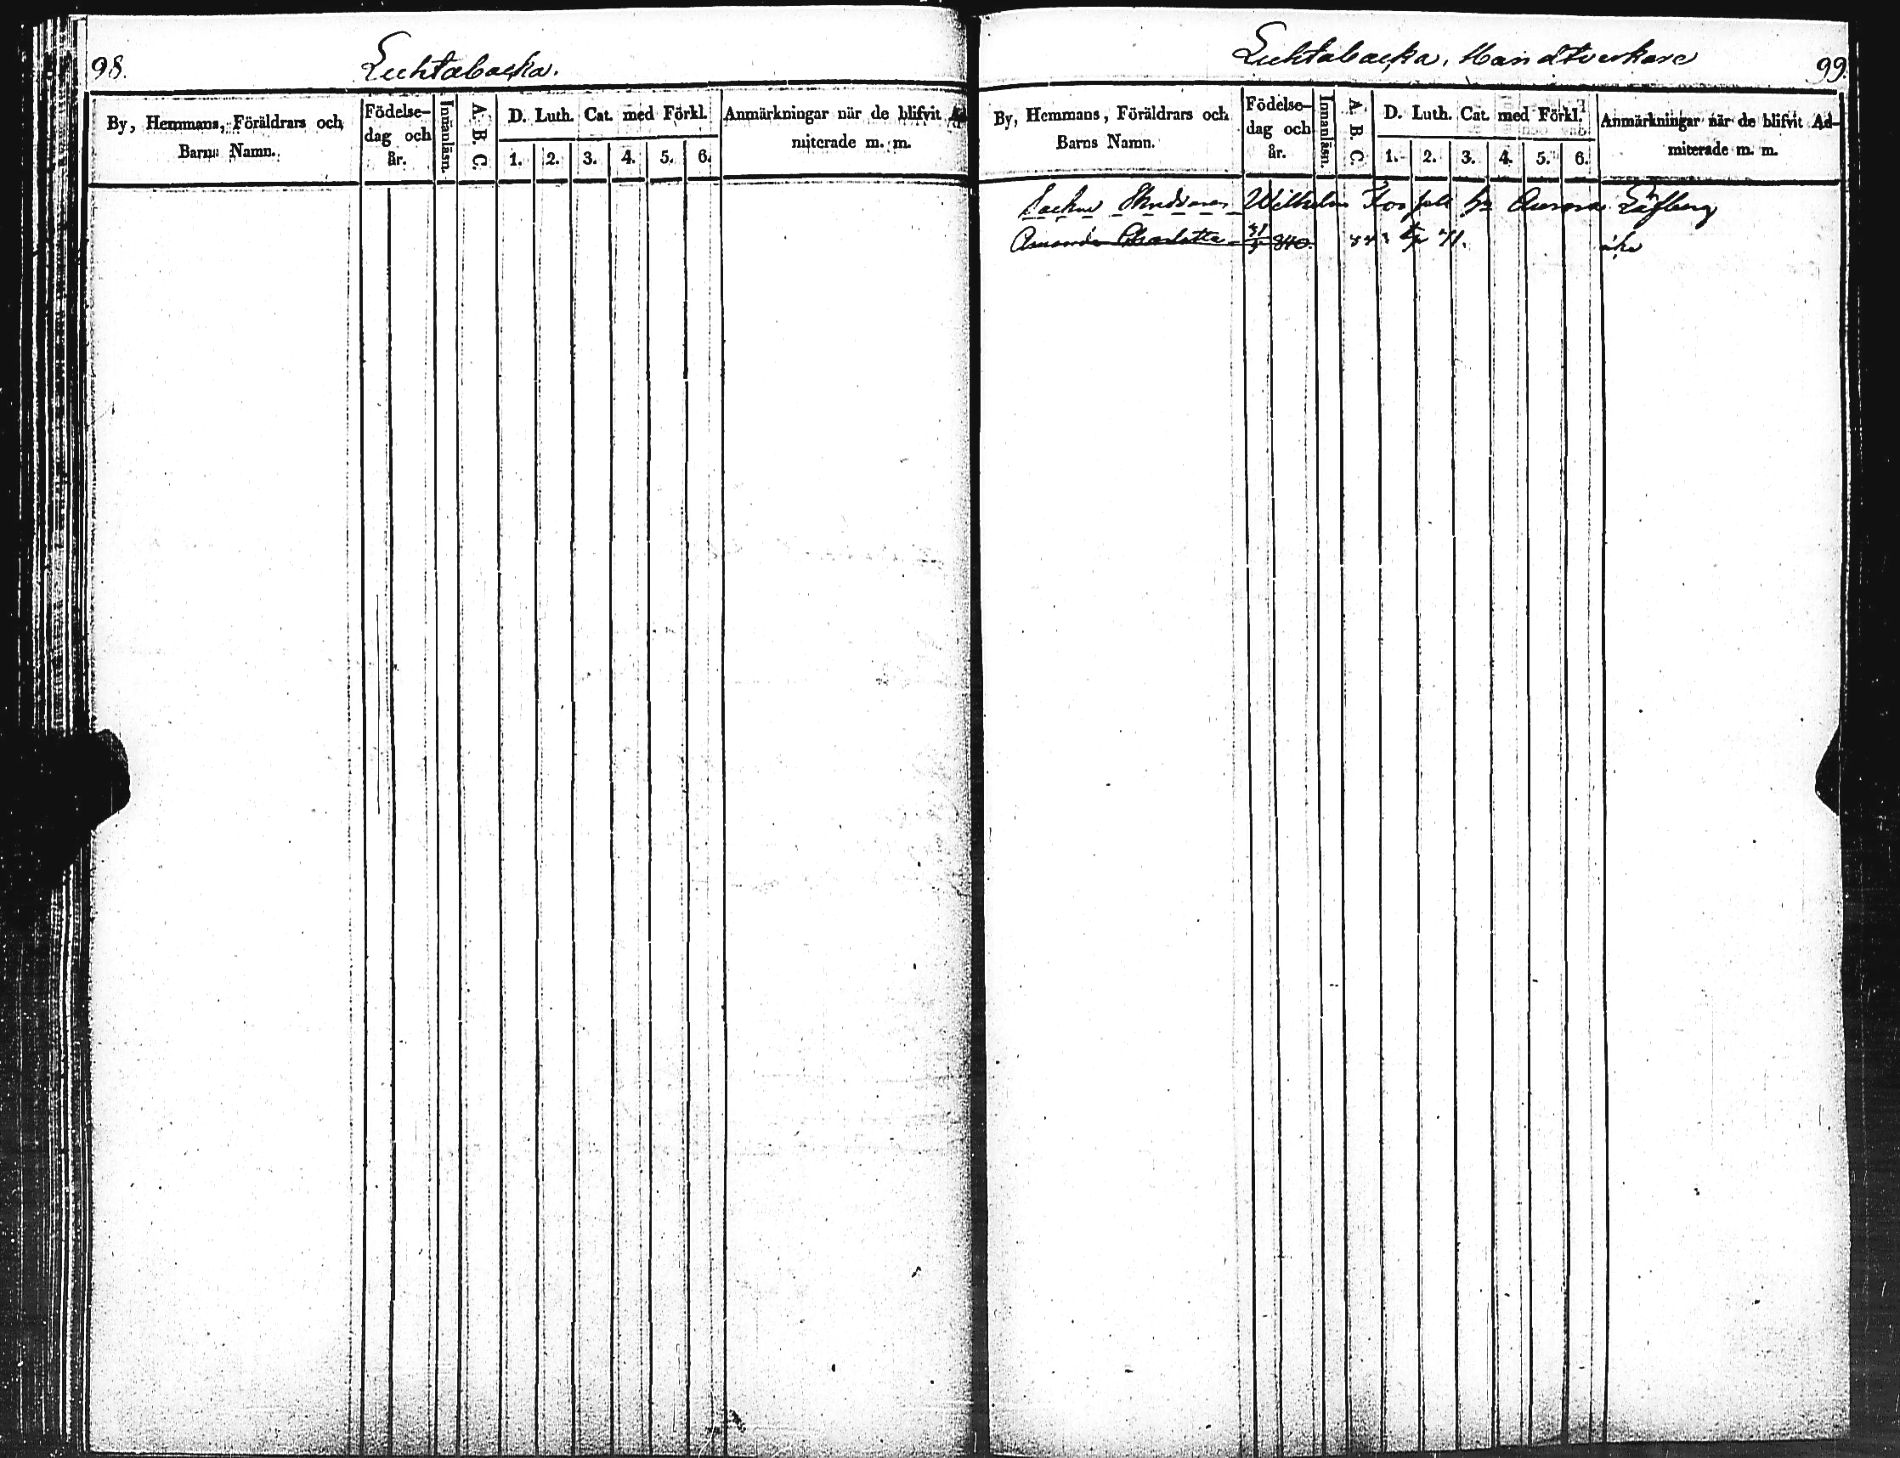 98.
Luhtabacka.
By, Hemmans, Föräldrars och
Barns Namn.
Födelse-
dag och
år.
Innanläsn.
A. B. C.
D. Luth. Cat. med Förkl.
1. 2. 3. 4. 5. 6.
Anmärkningar når de blifvit Ad-
miterade m. m.
Luhtabacka, Handtverkare
99
By, Hemmans, Föräldrars och
Barns Namn.
Födelse-
dag och
år.
Innanläsn.
A. B. C.
D. Luth. Cat. med Förkl.
1. 2. 3. 4. 5. 6.
Anmärkningar når de blifvit Ad-
miterade m. m.
Wilhelm Aurora Löfberg
Amanda Charlotta